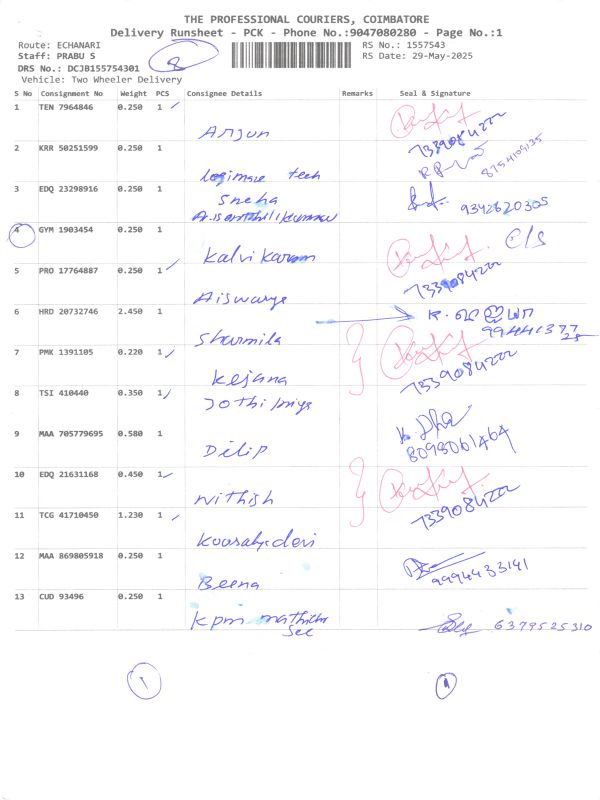 THE PROFESSIONAL COURIERS, COIMBATORE
Delivery Runsheet - PCK - Phone No.:9047080280 - Page No.:1
Route: ECHANARI
RS No.: 1557543
Staff: PRABU S
8
RS Date: 29-May-2025
DRS No.: DCJB155754301
Vehicle: Two Wheeler Delivery
S No Consignment No Weight PCS Consignee Details Remarks Seal & Signature
1 TEN 7964846 0.250 1
Arjun 7339084222
2 KRR 50251599 0.250 1
8754109135
logimore tech
3 EDQ 23298916 0.250 1
Sneha
9342820305
4 GYM 1903454 0.250 1
C/s
Kalvi Karam
5 PRO 17764887 0.250 1
7339084222
Aiswarya
6 HRD 20732746 2.450 1
Sharmila
7 PMK 1391105 0.220 1
7339084222
Kejana
8 TSI 410440 0.350 1
Jothi priya
9 MAA 705779695 0.580 1
Dilip
8098061464
10 EDQ 21631168 0.450 1
Nithish
7339084222
11 TCG 41710450 1.230 1
Kousalyadevi
12 MAA 869805918 0.250 1
9994433141
Beena
13 CUD 93496 0.250 1
kpm
6379525310
1